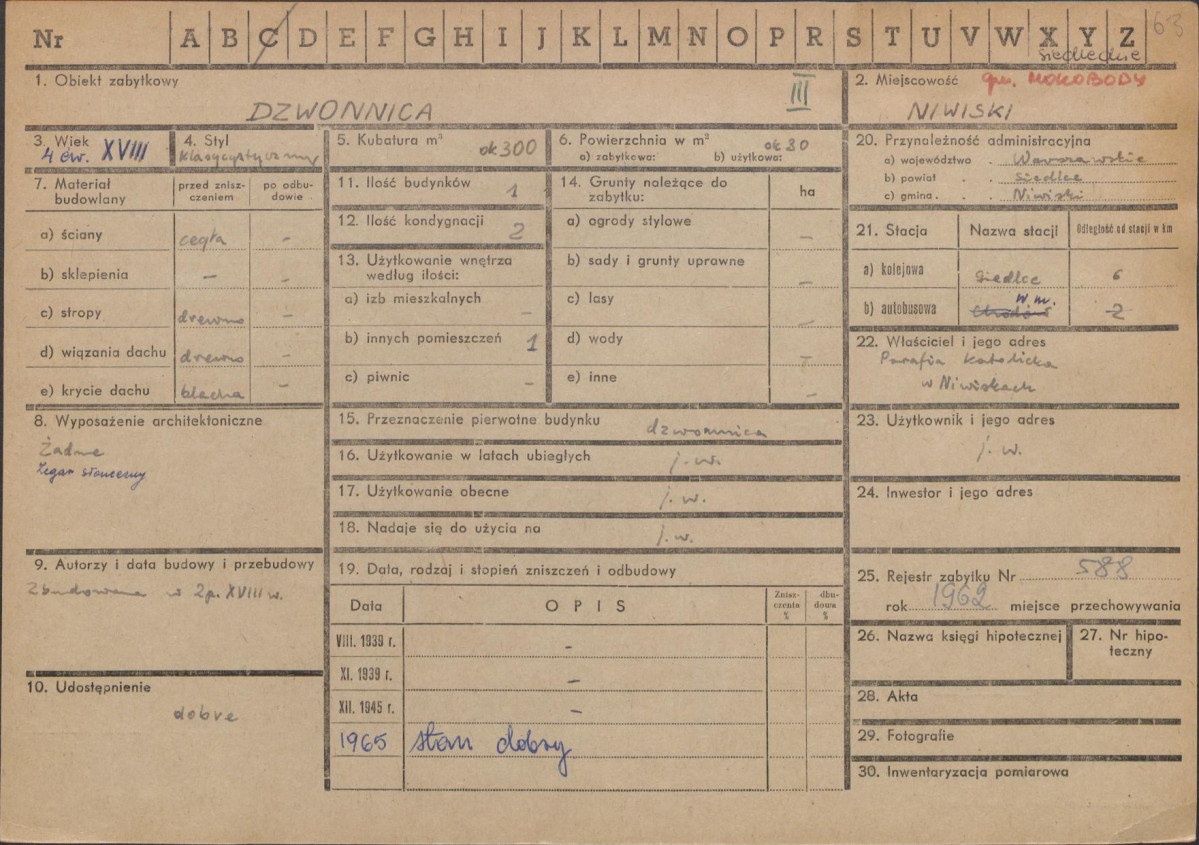 Nr A B C D E F G H I J K L M N O P R S T U V W X Y Z 63
siedleckie
1. Obiekt zabytkowy
DZWONNICA
III
2. Miejscowość gm. MOKOBODY
NIWISKI
3. Wiek
4 ćw. XVIII
4. Styl
klasycystyczny
5. Kubatura m³
ok 300
6. Powierzchnia w m²
ok 80
a) zabytkowa: b) użytkowa:
7. Materiał budowlany
przed zniszczeniem
po odbudowie
a) ściany cegła -
b) sklepienia - -
c) stropy drewno -
d) wiązania dachu drewno -
e) krycie dachu blacha -
8. Wyposażenie architektoniczne
Żadne
Zegar słoneczny
9. Autorzy i data budowy i przebudowy
Zbudowana w 2 p. XVIII w.
10. Udostępnienie
dobre
11. Ilość budynków 1
12. Ilość kondygnacji 2
13. Użytkowanie wnętrza
według ilości:
a) izb mieszkalnych -
b) innych pomieszczeń 1
c) piwnic -
14. Grunty należące do
zabytku:
ha
a) ogrody stylowe -
b) sady i grunty uprawne -
c) lasy -
d) wody -
e) inne -
15. Przeznaczenie pierwotne budynku dzwonnica
16. Użytkowanie w latach ubiegłych j. w.
17. Użytkowanie obecne j. w.
18. Nadaje się do użycia na j. w.
19. Data, rodzaj i stopień zniszczeń i odbudowy
Data OPIS Zniszczenia % dbudowa %
VIII. 1939 r. -
XI. 1939 r. -
XII. 1945 r. -
1965 stan dobry
20. Przynależność administracyjna
a) województwo . Warszawskie
b) powiat . . Siedlce
c) gmina . . . Niwiski
21. Stacja Nazwa stacji Odległość od stacji w km
a) kolejowa Siedlce 6
w m.
b) autobusowa 2
22. Właściciel i jego adres
Parafia Katolicka
w Niwiskach
23. Użytkownik i jego adres
j. w.
24. Inwestor i jego adres
25. Rejestr zabytku Nr 588
rok 1962 miejsce przechowywania
26. Nazwa księgi hipotecznej
27. Nr hipo-
teczny
28. Akta
29. Fotografie
30. Inwentaryzacja pomiarowa